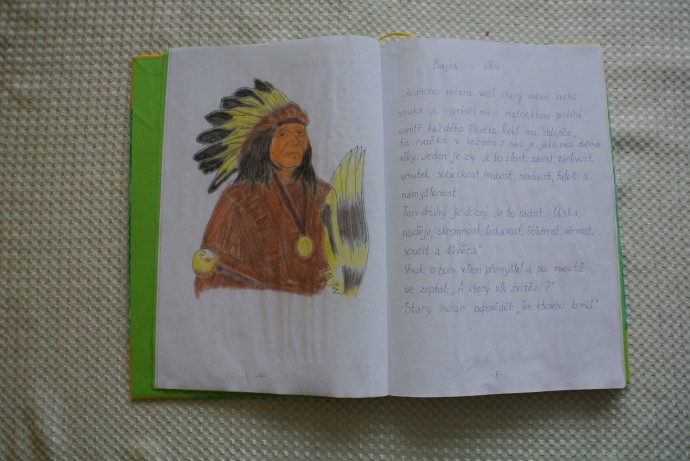 Bajka o vlku
Jednoho večera vzal starý indián svého
vnuka a vyprávěl mu o bitvě, která probíhá
uvnitř každého člověka. Řekl mu: "Chlapče,
ta rvačka v každém z nás je jako mezi dvěma
vlky. Jeden je zlý. Je to zlost, závist, žárlivost,
smutek, sobeckost, hrubost, nenávist, faleš a
namyšlenost.
Ten druhý je dobrý. Je to radost, láska,
naděje, skromnost, laskavost, štědrost, věrnost,
soucit a důvěra."
Vnuk o tom všem přemýšlel a po minutě
se zeptal: „A který vlk zvítězí?"
Starý Indián odpověděl: „Ten, kterého krmíš."
-4-
-5-